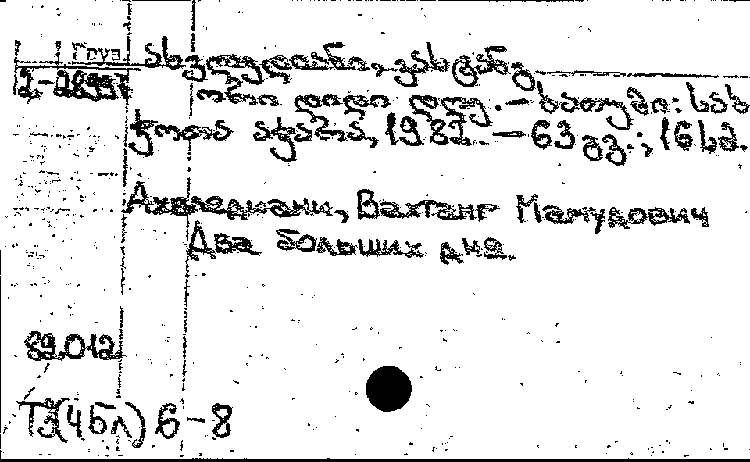 Груз.
ახვლედიანი, ვახტანგ
2-28997
ორი დიდი დღე. — ბათუმი: საბ
ჭოთა აჭარა, 1982. — 63 გვ.; 16 სმ.
Ахвледиани, Вахтанг Мамудович
Два больших дня.
82.012
Т3(4Бл)6-8